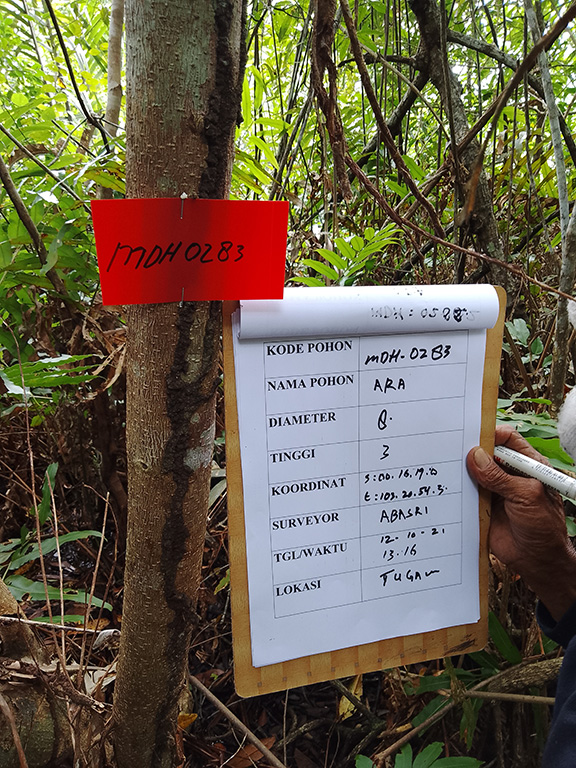 MDH0283
KODE POHON MDH-0283
NAMA POHON ARA
DIAMETER 8.
TINGGI 3
KOORDINAT S:00.16.19.0
E:103.20.54.3.
SURVEYOR ABASRI
TGL/WAKTU 12-10-21
13.16
LOKASI TUGAW